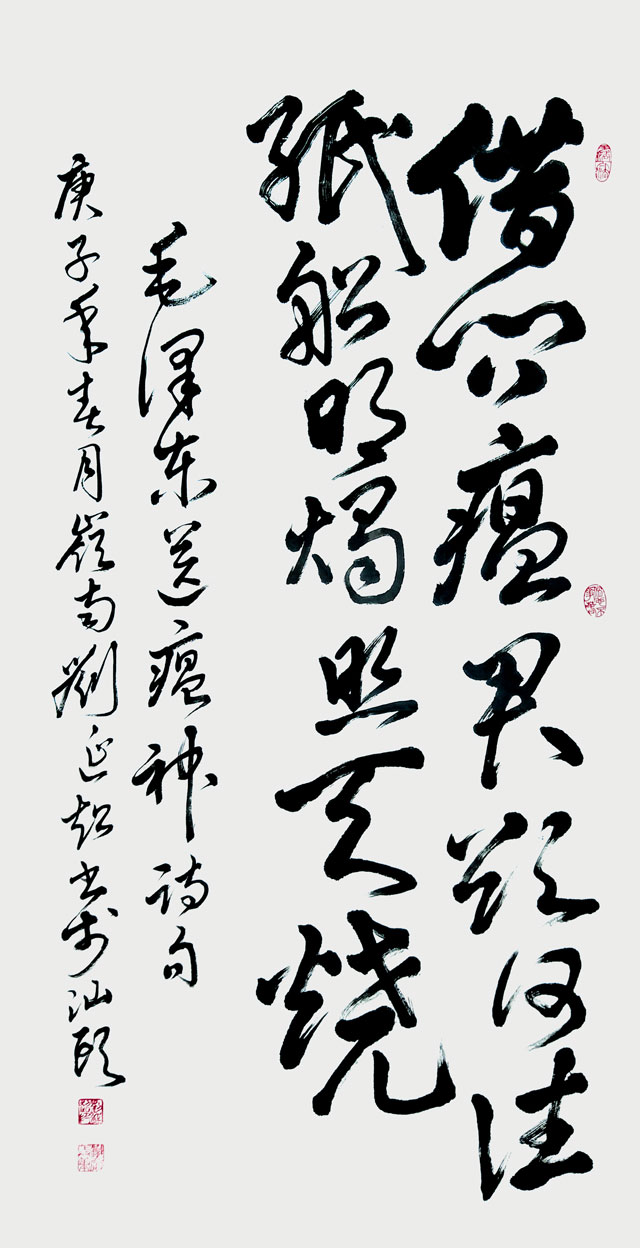 借问瘟君欲何往
纸船明烛照天烧
毛泽东送瘟神诗句
庚子年春月岭南刘延超书于汕头